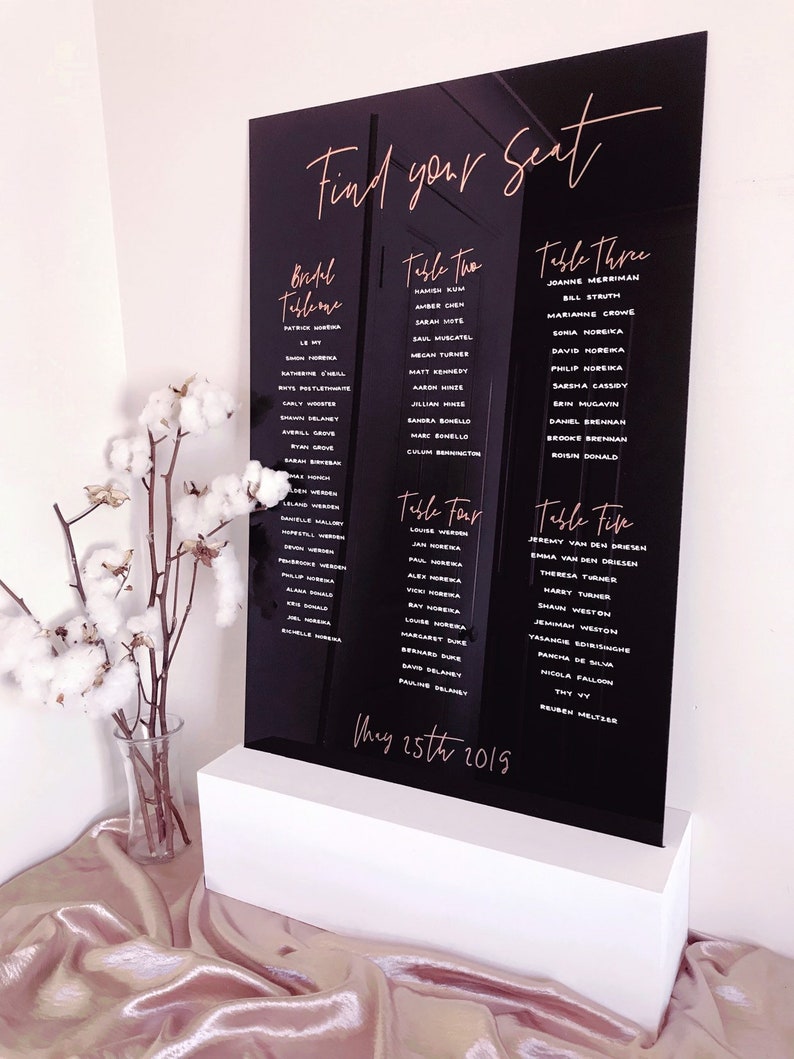 Find your Seat
Bridal
Table one
PATRICK NOREIKA
LE MY
SIMON NOREIKA
KATHERINE O'NEILL
RHYS POSTLETHWAITE
CARLY WOOSTER
SHAWN DELANEY
AVERILL GROVE
RYAN GROVE
SARAH BIRKEBAK
MAX HONCH
LDEN WERDEN
LELAND WERDEN
DANIELLE MALLORY
HOPESTILL WERDEN
DEVON WERDEN
PEMBROOKE WERDEN
PHILLIP NOREIKA
ALANA DONALD
KRIS DONALD
JOEL NOREIKA
RICHELLE NOREIKA
Table Two
HAMISH KUM
AMBER CHEN
SARAH MOTE
SAUL MUSCATEL
MEGAN TURNER
MATT KENNEDY
AARON HINZE
JILLIAN HINZE
SANDRA BONELLO
MARC BONELLO
CULUM BENNINGTON
Table Three
JOANNE MERRIMAN
BILL STRUTH
MARIANNE CROWE
SONIA NOREIKA
DAVID NOREIKA
PHILIP NOREIKA
SARSHA CASSIDY
ERIN MUGAVIN
DANIEL BRENNAN
BROOKE BRENNAN
ROISIN DONALD
Table Four
LOUISE WERDEN
JAN NOREIKA
PAUL NOREIKA
ALEX NOREIKA
VICKI NOREIKA
RAY NOREIKA
LOUISE NOREIKA
MARGARET DUKE
BERNARD DUKE
DAVID DELANEY
PAULINE DELANEY
Table Five
JEREMY VAN DEN DRIESEN
EMMA VAN DEN DRIESEN
THERESA TURNER
HARRY TURNER
SHAUN WESTON
JEMIMAH WESTON
YASANGIE EDIRISINGHE
PANCHA DE SILVA
NICOLA FALLOON
THY VY
REUBEN MELTZER
May 25th 2019